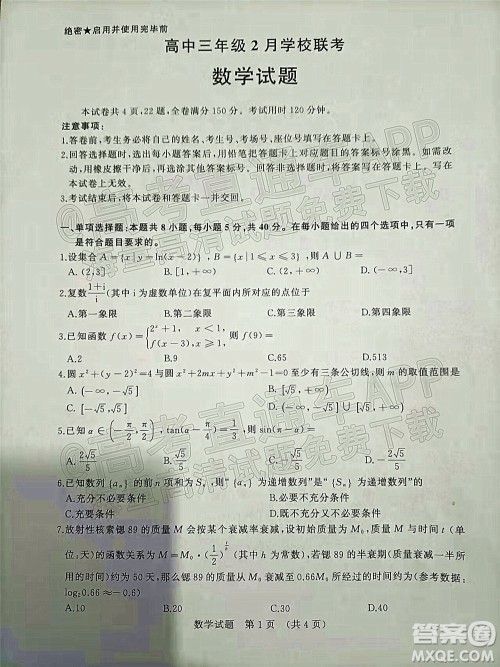 绝密★启用并使用完毕前
高中三年级2月学校联考
数学试题
本试卷共4页,22题,全卷满分150分。考试用时120分钟。
注意事项:
1.答卷前,考生务必将自己的姓名、考生号、考场号、座位号填写在答题卡上。
2.回答选择题时,选出每小题答案后,用铅笔把答题卡上对应题目的答案标号涂黑。如需改
动,用橡皮擦干净后,再选涂其他答案标号。回答非选择题时,将答案写在答题卡上。写在
本试卷上无效。
3.考试结束后,将本试卷和答题卡一并交回。
一、单项选择题:本题共8小题,每小题5分,共40分。在每小题给出的四个选项中,只有一项
是符合题目要求的。
1.设集合A={x|y=ln(x-2)},B={x|1≤x≤3},则A∪B=
A.(2,3] B.[1,+∞) C.(2,+∞) D.[1,3]
2.复数(1+i)/i(其中i为虚数单位)在复平面内所对应的点在
A.第一象限 B.第二象限 C.第三象限 D.第四象限
3.已知函数f(x)={2^x+1, x<1, 
A.2 B.9 C.65 D.513
4.圆x²+(y-2)²=4与圆x²+2mx+y²+m²-1=0至少有三条公切线,则m的取值范围是
A.(-∞,-√5] B.[√5,+∞)
C.[-√5,√5] D.(-∞,-√5]∪[√5,+∞)
5.已知α∈(-π/2,π/2),
A.2√5/5 B.√5/5 C.-2√5/5 D.-√5/5
6.已知数列{aₙ}的前n项和为Sₙ,则“{aₙ}为递增数列”是“{Sₙ}为递增数列”的
A.充分不必要条件 B.必要不充分条件
C.充要条件 D.既不充分也不必要条件
7.放射性核素锶89的质量M会按某个衰减率衰减,设初始质量为M₀,质量M与时间t(单
位:天)的函数关系为
约为50天,那么质量为M₀的锶89经过30天衰减后质量约变为(参考数据:
log₂0.66≈-0.6)
A.10%M₀ B.20%M₀ C.0.66M₀ D.40%M₀
数学试题 第1页 (共4页)
@高考直通车APP
答案圈
MXQE.COM